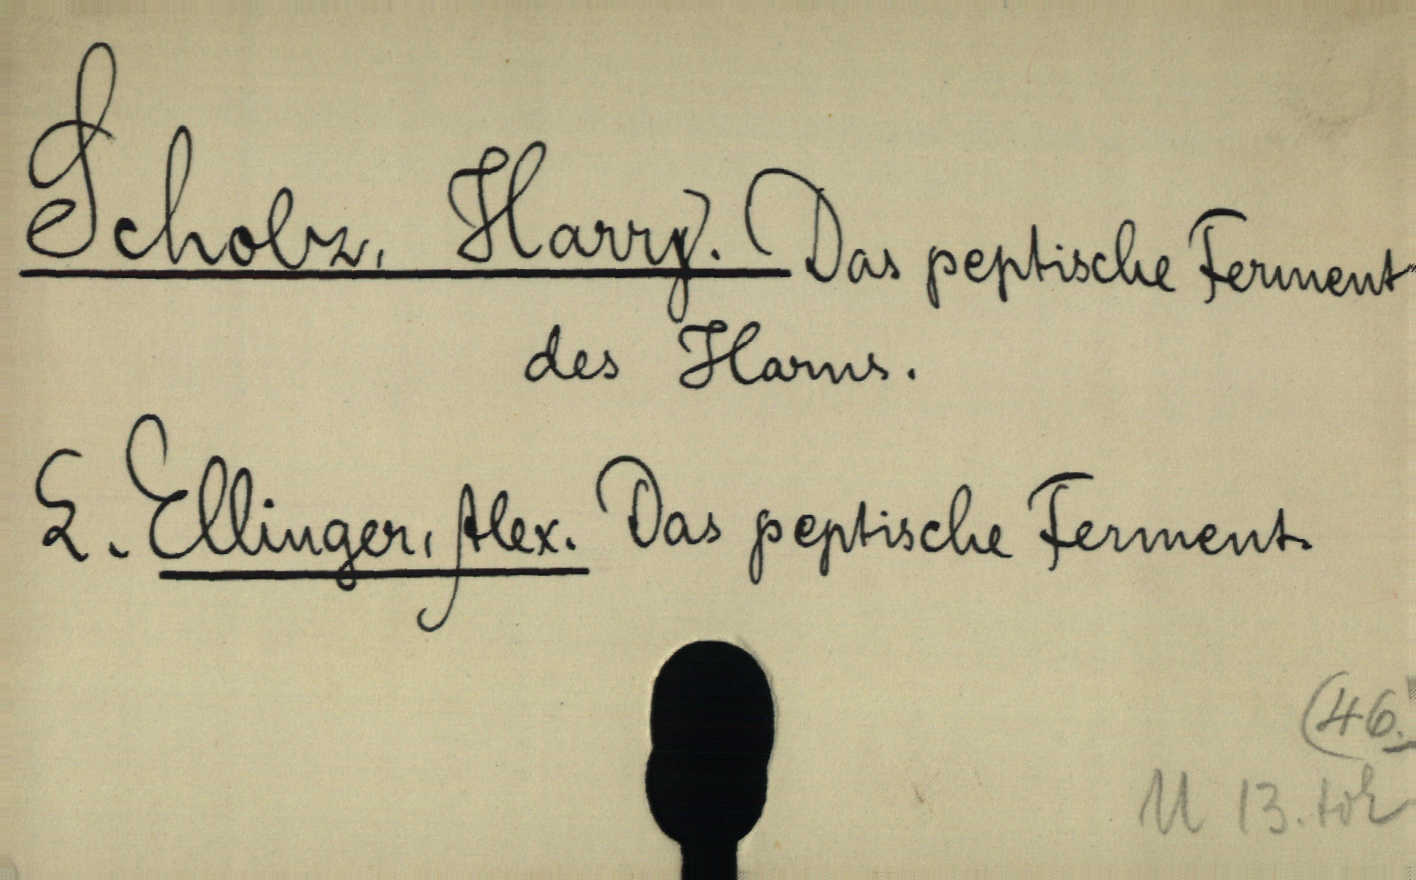 Scholz, Harry. Das peptische Ferment
des Harns.
S. Ellinger, Alex. Das peptische Ferment.
(46.
U 13.